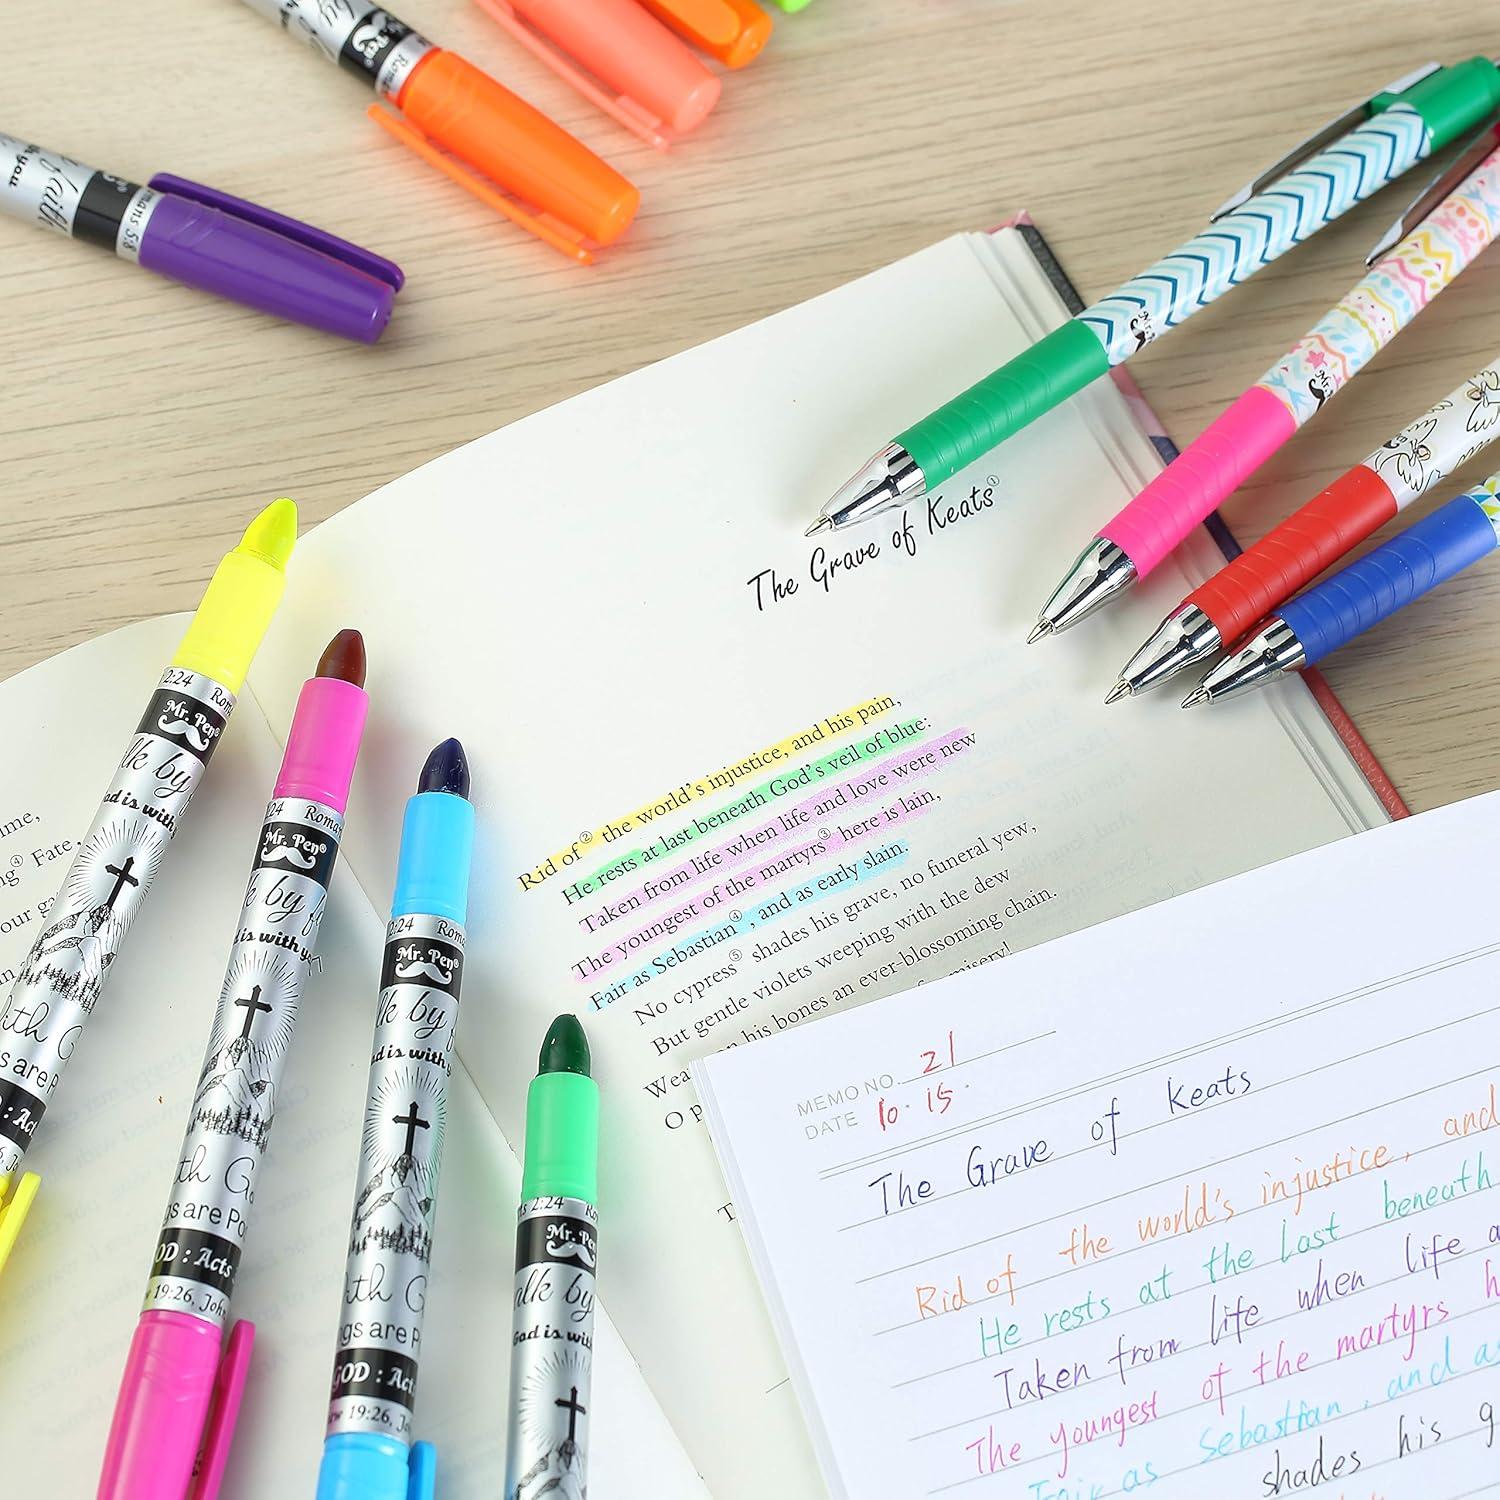 Romans 5:8
The Grave of Keats①
Rid of② the world's injustice, and his pain,
He rests at last beneath God's veil of blue:
Taken from life when life and love were new
The youngest of the martyrs③ here is lain,
Fair as Sebastian④, and as early slain.
No cypress⑤ shades his grave, no funeral yew,
But gentle violets weeping with the dew
on his bones an ever-blossoming chain.
misery!
④ Fate,
2:24
Mr. Pen®
by
is with
with
are
: Act
2:24 Roma
Mr. Pen®
by
is with you
are
: Acts
19:26, John
2:24 Roma
Mr. Pen®
by
is with
with
are
GOD : Act
19:26, John
2:24
Mr. Pen
by
God is with
MEMO NO. 21
DATE 10.15.
The Grave of Keats
Rid of the world's injustice, and
He rests at the last beneath
Taken from life when life
The youngest of the martyrs
Fair as Sebastian, and
shades his